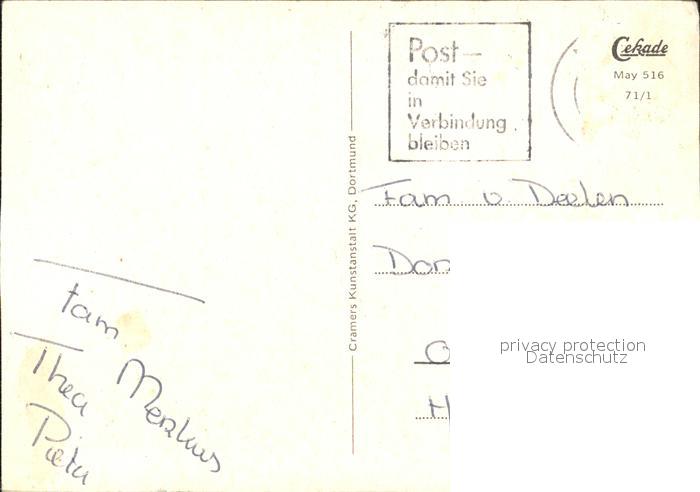 Post—
damit Sie
in
Verbindung
bleiben
Cekade
May 516
71/1
Cramers Kunstanstalt KG, Dortmund
Fam v Deelen
Don
O
H
privacy protection
Datenschutz
fam
Merkus
Thea
Pieter